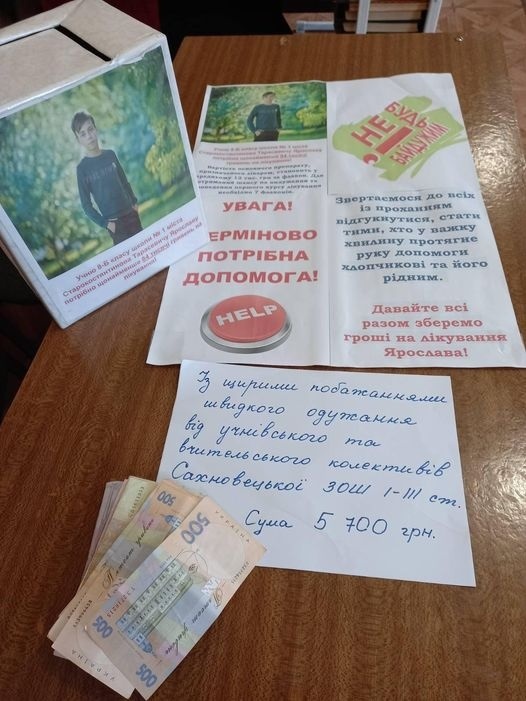 Учню 8-Б класу школи № 1 міста
Старокостянтинова Тарасевичу Ярославу
потрібно щонайменше 84 тисячі гривень на
лікування!
Учню 8-Б класу школи № 1 міста
Старокостянтинова Тарасевичу Ярославу
потрібно щонайменше 84 тисячі
гривень на лікування!
Вартість основного препарату,
призначеного лікарем, становить у
середньому 12 тис. грн за флакон. Для
необхідно 7 флаконів.
УВАГА!
ТЕРМІНОВО
ПОТРІБНА
ДОПОМОГА!
HELP
БУДЬ
НЕ
БАЙДУЖИМ
Звертаємося до всіх
із проханням
відгукнутися, стати
тими, хто у важку
хвилину протягне
руку допомоги
хлопчикові та його
рідним.
Давайте всі
разом зберемо
гроші на лікування
Ярослава!
Із щирими побажаннями
швидкого одужання
від учнівського та
вчительського колективів
Сахновецької ЗОШ І-ІІІ ст.
Сума 5 700 грн.
500
УКРАЇНА
500
500
500
УКРАЇНА